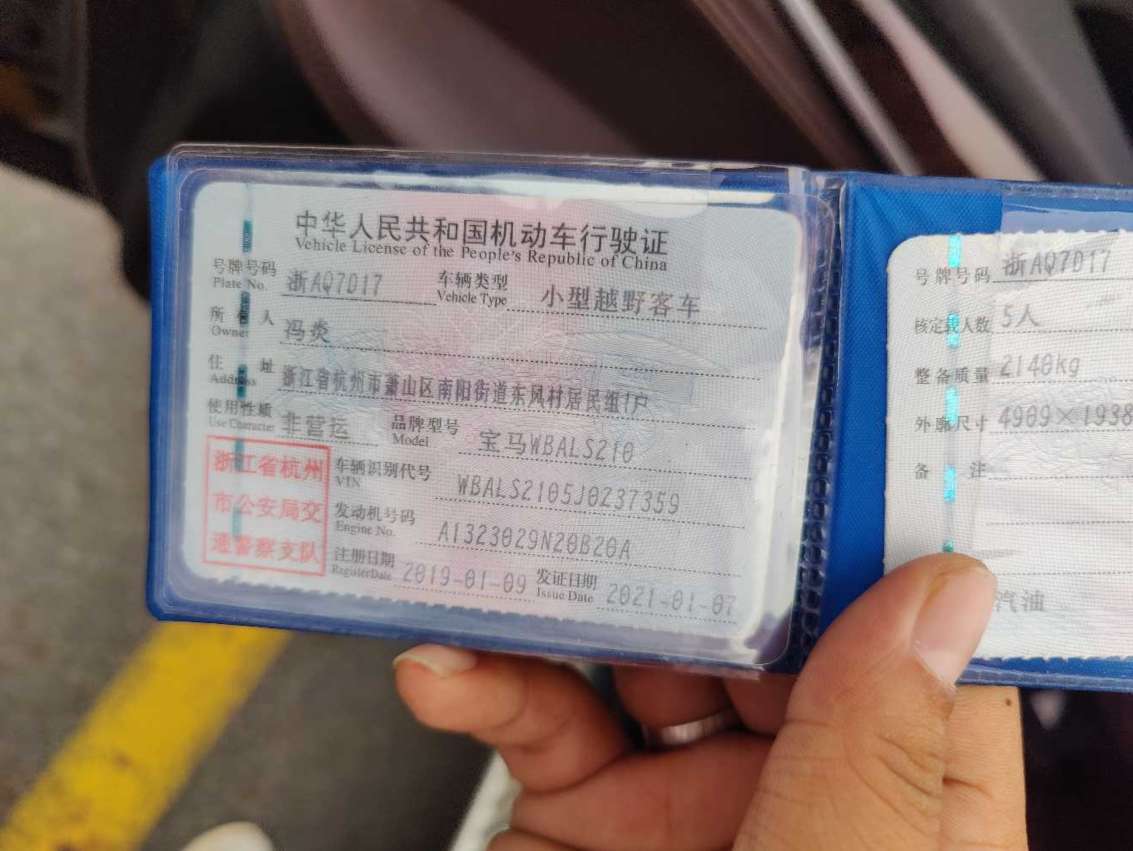 中华人民共和国机动车行驶证
Vehicle License of the People's Republic of China
号牌号码 浙AQ7D17 车辆类型 小型越野客车
Plate No. Vehicle Type
所有人 冯炎
Owner
住址 浙江省杭州市萧山区南阳街道东风村居民组1户
Address
使用性质 非营运 品牌型号 宝马WBALS210
Use Character Model
浙江省杭州
市公安局交
通警察支队
车辆识别代号 WBALS2105J0237359
VIN
发动机号码 A1323029N20B20A
Engine No.
注册日期 2019-01-09 发证日期 2021-01-07
Register Date Issue Date
号牌号码 浙AQ7D17
核定载人数 5人
整备质量 2140kg
外廓尺寸 4909×1938
备注
汽油